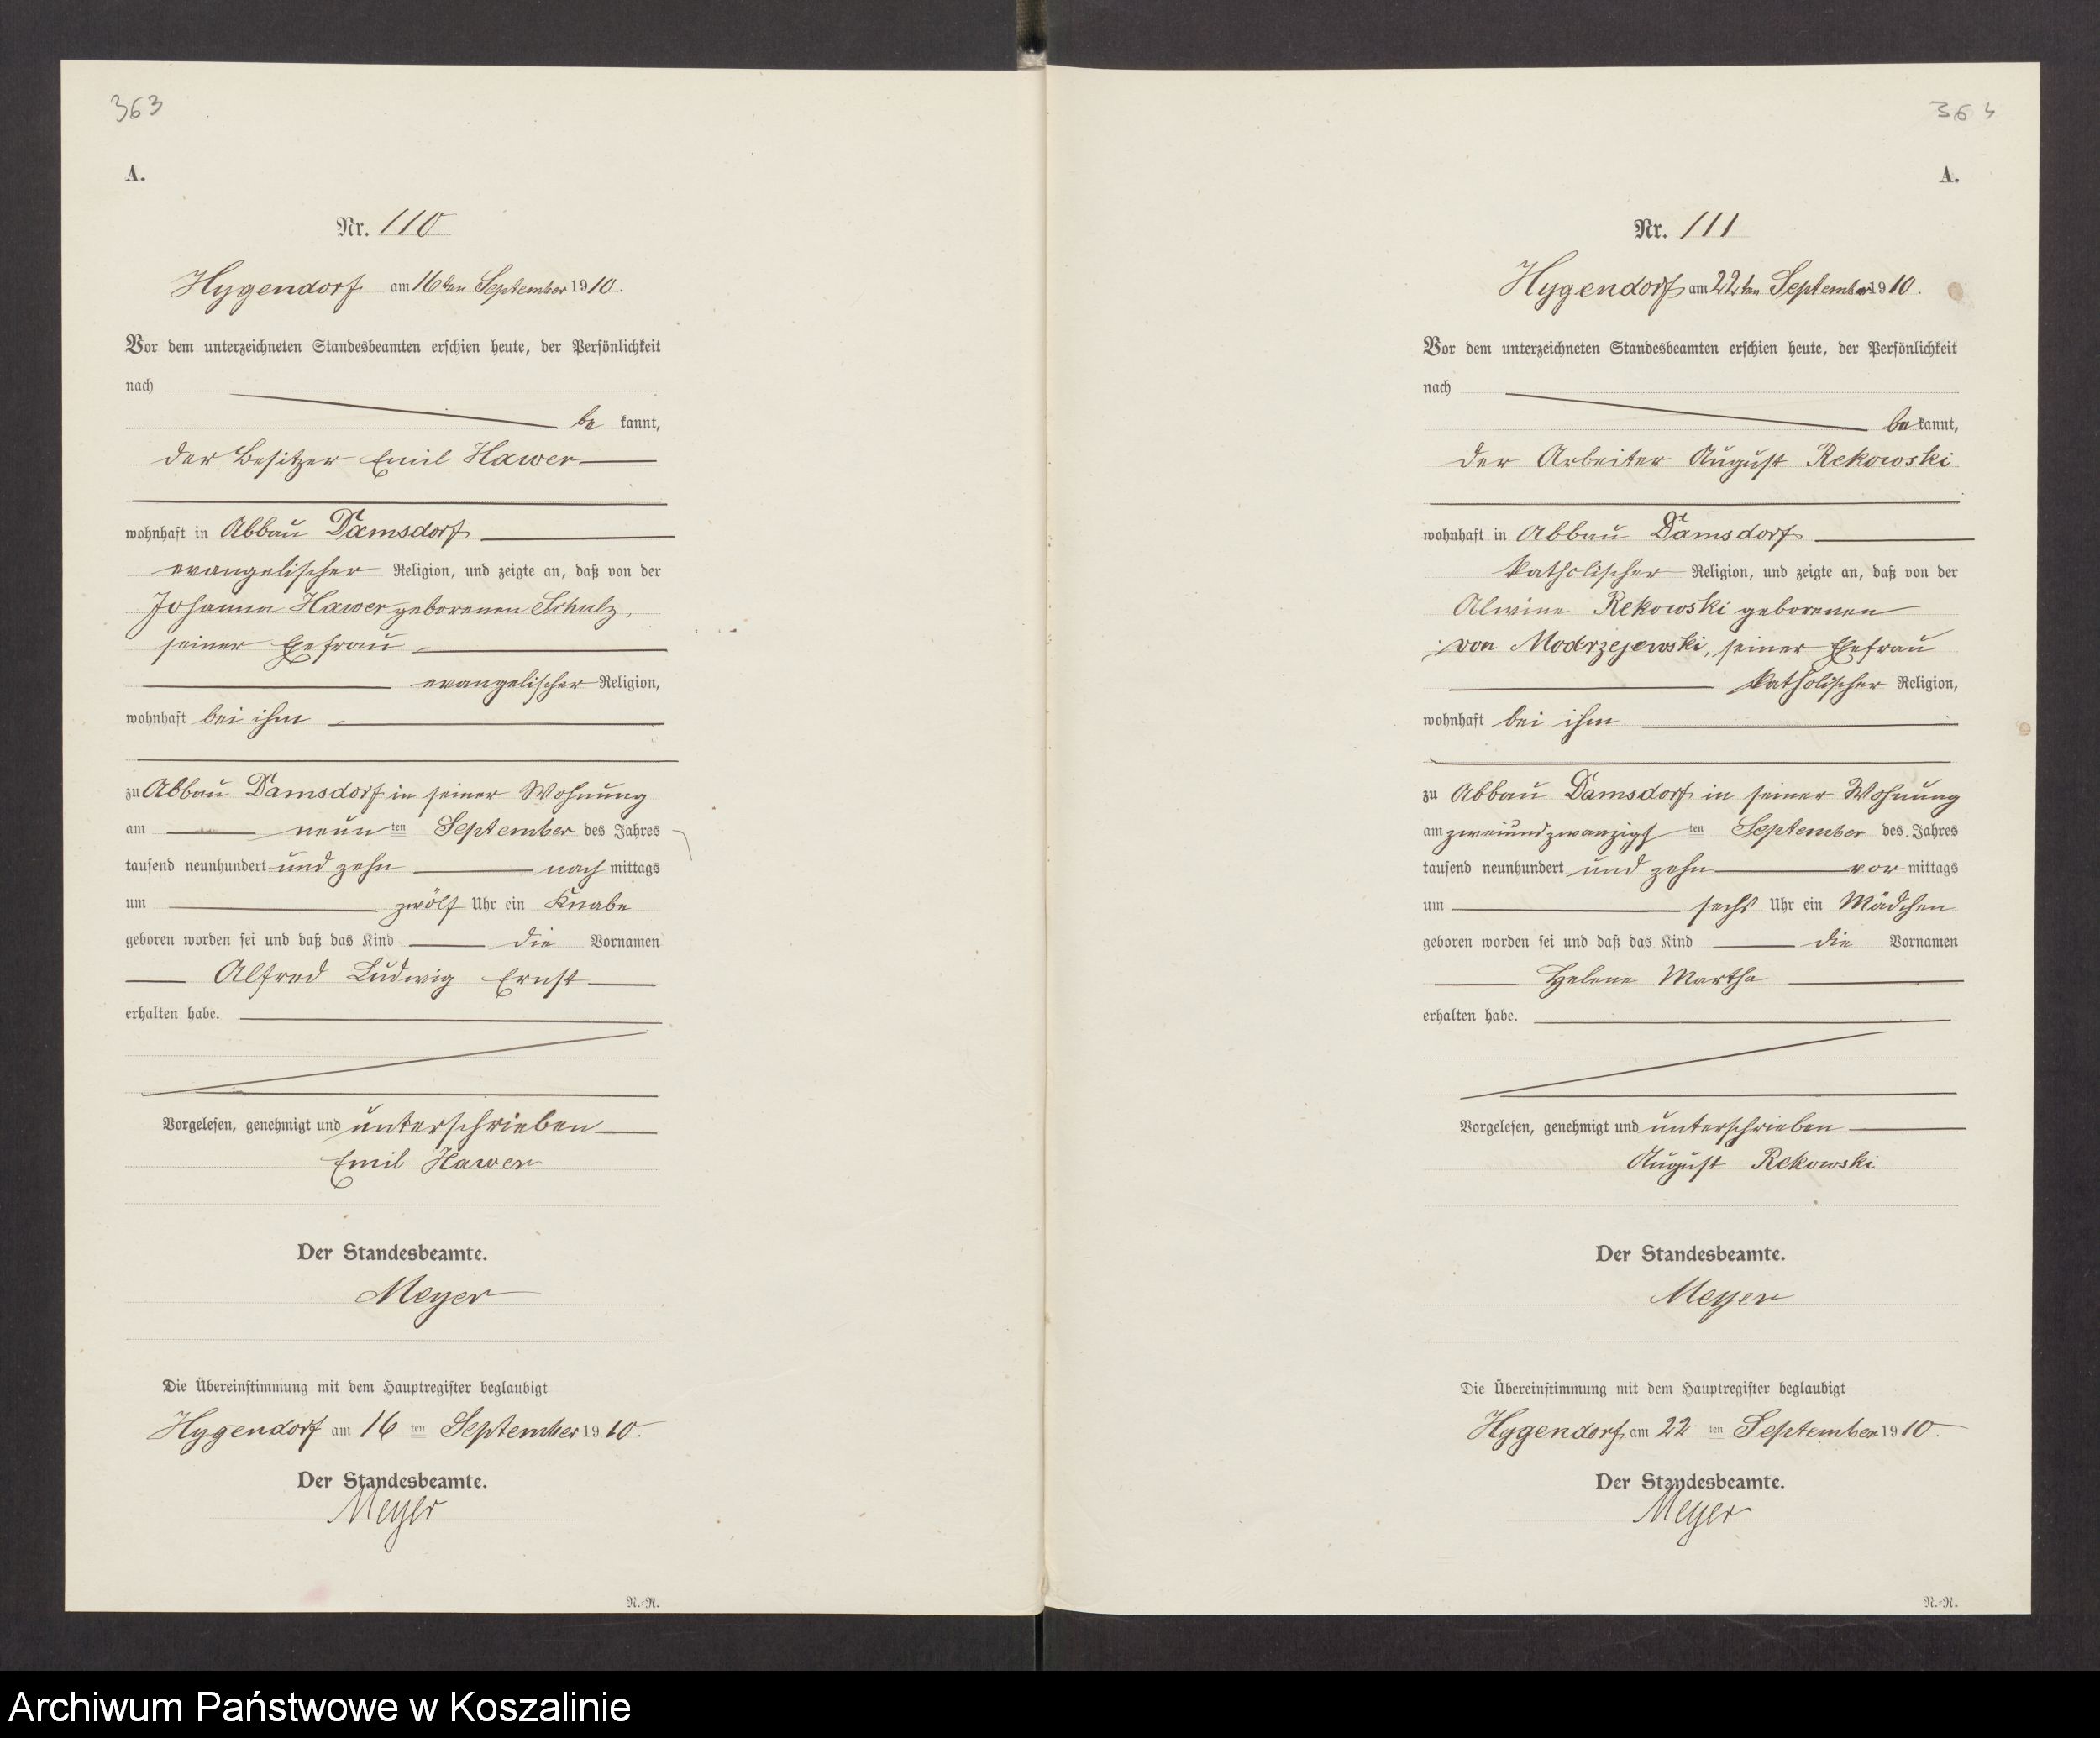 363
A.
Nr. 110
Hygendorf am 16ten September 1910.
Vor dem unterzeichneten Standesbeamten erschien heute, der Persönlichkeit
nach
be kannt,
der Besitzer Emil Hawer
wohnhaft in Abbau Damsdorf
evangelischer Religion, und zeigte an, daß von der
Johanna Hawer geborenen Schulz,
seiner Ehefrau
evangelischer Religion,
wohnhaft bei ihm
zu Abbau Damsdorf in seiner Wohnung
am neun ten September des Jahres
tausend neunhundert und zehn nach mittags
um zwölf Uhr ein Knabe
geboren worden sei und daß das Kind die Vornamen
Alfred Ludwig Ernst
erhalten habe.
Vorgelesen, genehmigt und unterschrieben
Emil Hawer
Der Standesbeamte.
Meyer
Die Übereinstimmung mit dem Hauptregister beglaubigt
Hygendorf am 16 ten September 1910.
Der Standesbeamte.
Meyer
N.=N.
364
A.
Nr. 111
Hygendorf am 22ten September 1910.
Vor dem unterzeichneten Standesbeamten erschien heute, der Persönlichkeit
nach
be kannt,
der Arbeiter August Rekowski
wohnhaft in Abbau Damsdorf
katholischer Religion, und zeigte an, daß von der
Alwine Rekowski geborenen
von Modrzejewski, seiner Ehefrau
katholischer Religion,
wohnhaft bei ihm
zu Abbau Damsdorf in seiner Wohnung
am zweiundzwanzigs ten September des Jahres
tausend neunhundert und zehn vor mittags
um sechs Uhr ein Mädchen
geboren worden sei und daß das Kind die Vornamen
Helene Martha
erhalten habe.
Vorgelesen, genehmigt und unterschrieben
August Rekowski
Der Standesbeamte.
Meyer
Die Übereinstimmung mit dem Hauptregister beglaubigt
Hygendorf am 22 ten September 1910.
Der Standesbeamte.
Meyer
N.=N.
Archiwum Państwowe w Koszalinie